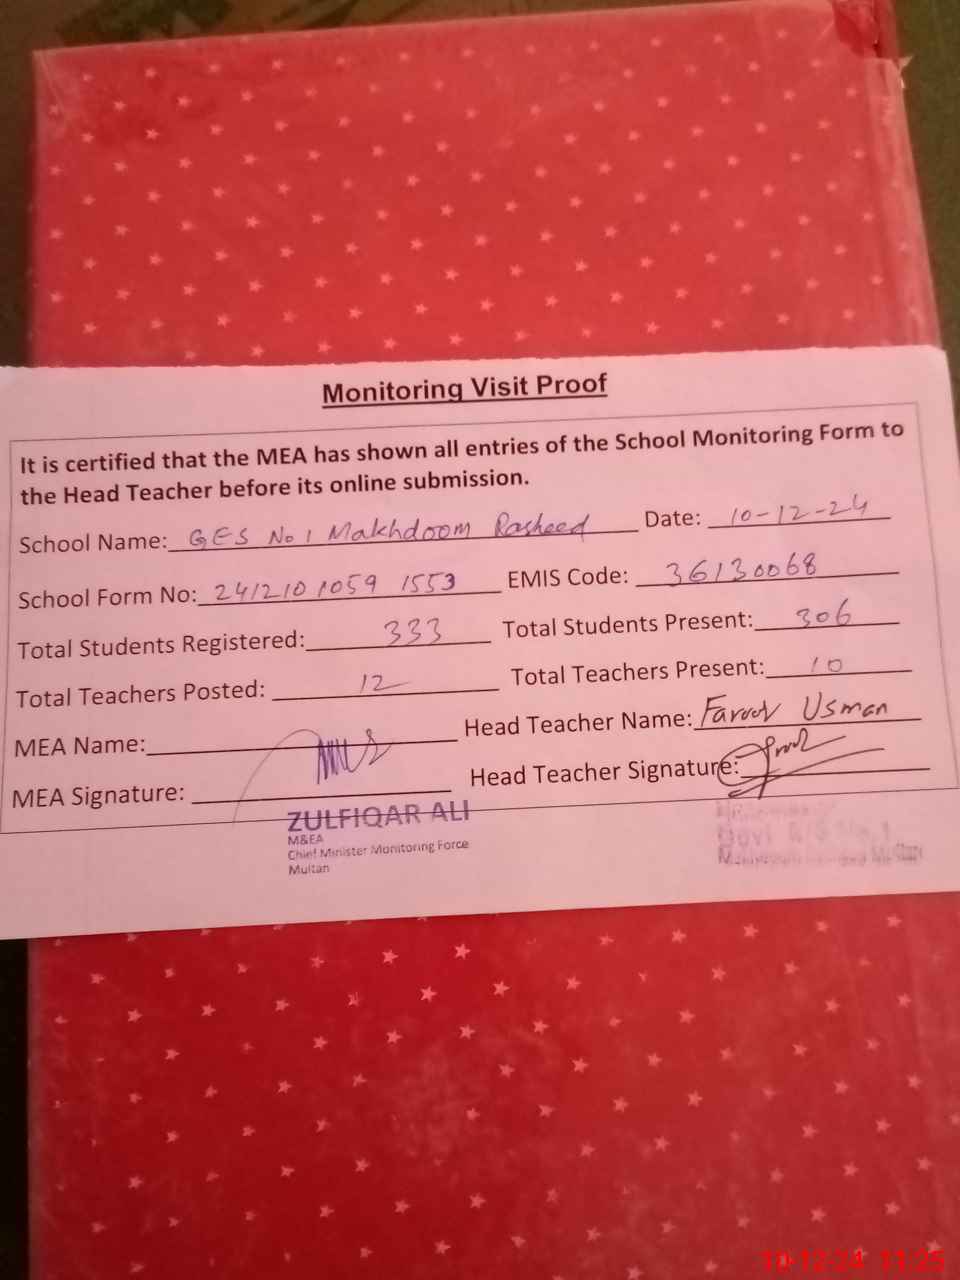 Monitoring Visit Proof
It is certified that the MEA has shown all entries of the School Monitoring Form to
the Head Teacher before its online submission.
School Name: GES No 1 Makhdoom Rasheed Date: 10-12-24
School Form No: 241210 1059 1553 EMIS Code: 36130068
Total Students Registered: 333 Total Students Present: 306
Total Teachers Posted: 12 Total Teachers Present: 10
MEA Name: Head Teacher Name: Farooq Usman
MEA Signature: Head Teacher Signature:
ZULFIQAR ALI
M&EA
Chief Minister Monitoring Force
Multan
Multan
10-12-24 11:25